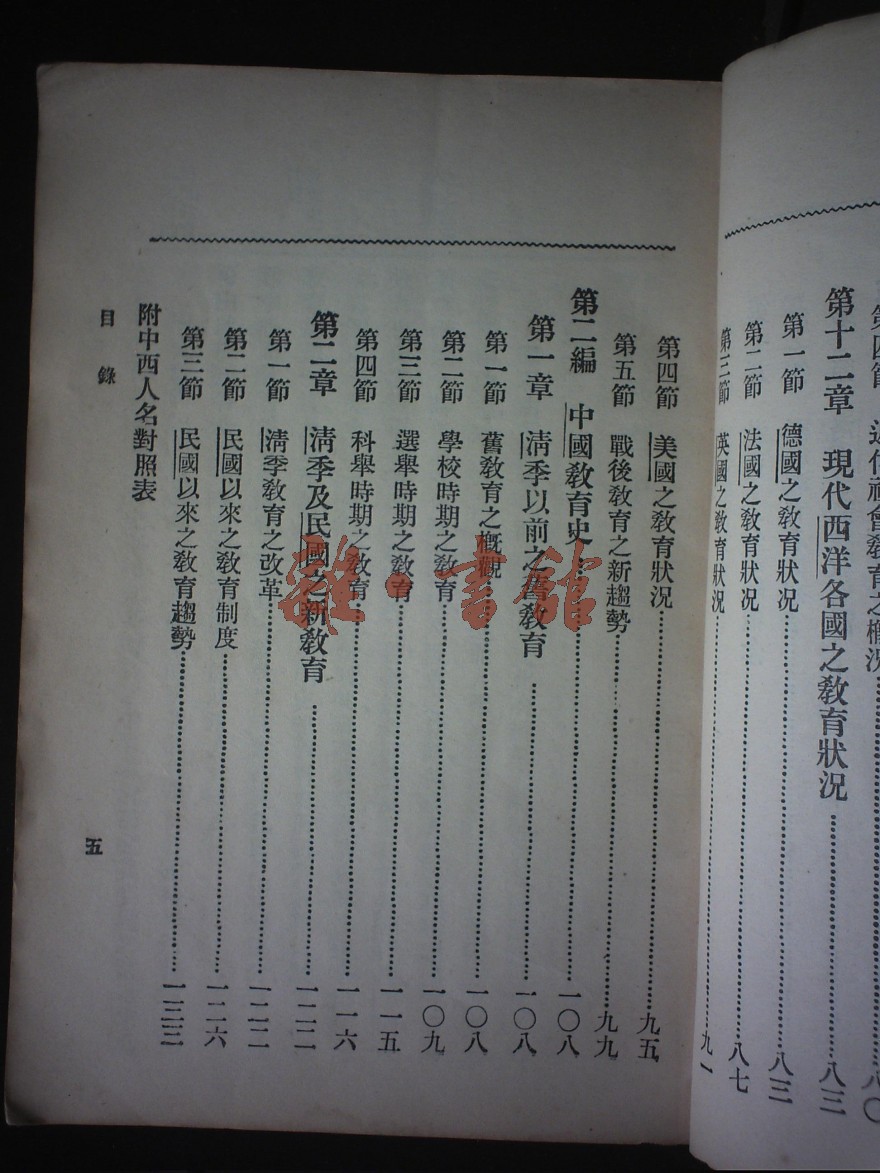 第十二章 現代西洋各國之教育狀況……八三
第一節 德國之教育狀況……八三
第二節 法國之教育狀況……八七
第三節 英國之教育狀況……九一
第四節 美國之教育狀況……九五
第五節 戰後教育之新趨勢……九九
第二編 中國教育史……一〇八
第一章 淸季以前之舊教育……一〇八
第一節 舊教育之概觀……一〇八
第二節 學校時期之教育……一〇九
第三節 選舉時期之教育……一一五
第四節 科舉時期之教育……一一六
第二章 淸季及民國之新教育……一二二
第一節 淸季教育之改革……一二二
第二節 民國以來之教育制度……一二六
第三節 民國以來之教育趨勢……一三三
附中西人名對照表
目錄
五
雜·書館